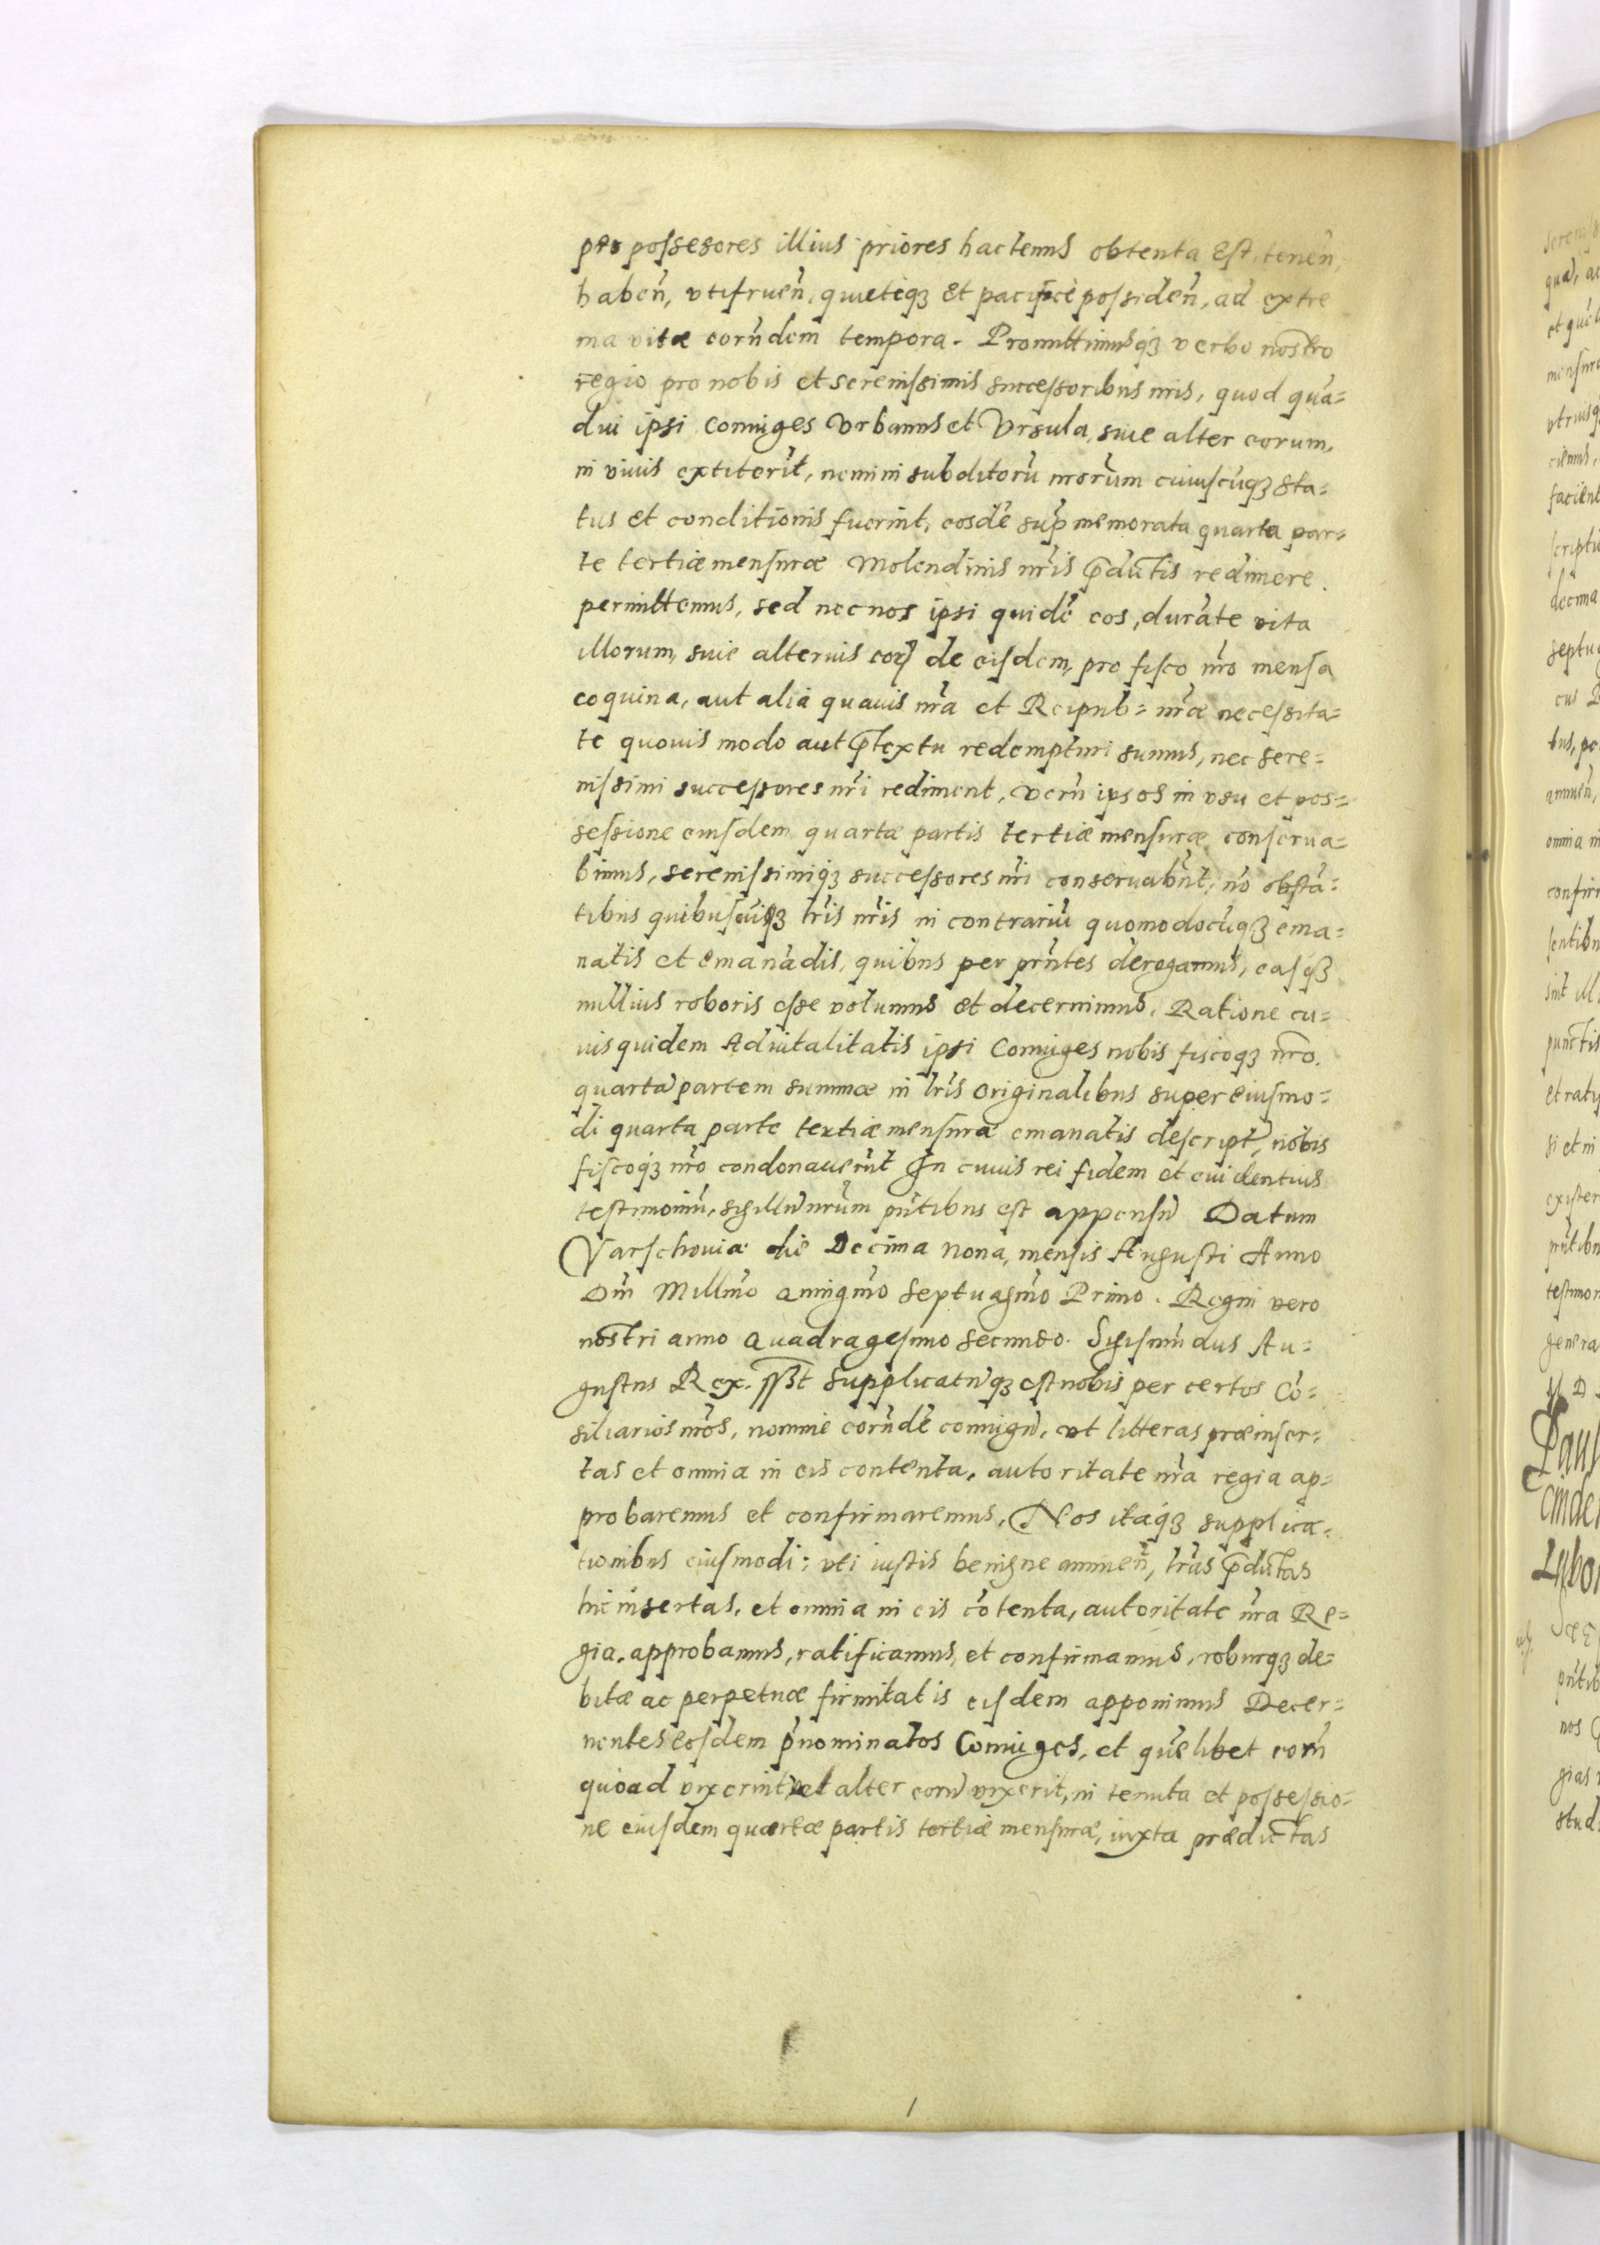 per possesores illius priores hactenus obtenta Est, tenen̄,
haben̄, vtifruen̄, quieteqȝ Et pacificè possiden̄, ad extre
ma vitæ eorūdem tempora. Promittimusqȝ verbo nostro
regio pro nobis et serenissimis successoribus nr̄is, quod quā=
diu ipsi Coniuges Vrbanus et Vrsula, siue alter eorum,
in viuis extiterīt, nemini subditorū nr̄orum cuiuscūqȝ sta=
tus et conditionis fuerint, eosdē sup̄memorata quarta par=
te tertiæ mensuræ Molendinis nr̄is p̄dictis redimere
permittemus, sed nec nos ipsi quidē eos, durāte vita
illorum, siue alterius eorꝝ de eisdem, pro fisco nr̄o mensa
coquina, aut alia quauis nr̄a et Reipub= nr̄æ necessita=
te quouis modo aut p̄textu redempturi sumus, nec sere=
nissimi successores nr̄i rediment, Verū ipsos in vsu et pos=
sessione eiusdem quartæ partis tertiæ mensuræ conserua=
bimus, serenissimiqȝ successores nr̄i conseruabūt, nō obstā=
tibus quibusuisqȝ lr̄is nr̄is in contrariū quomodocūqȝ ema=
natis et emanādis, quibus per pr̄ntes derogamus, easqȝ
nullius roboris esse volumus et decernimus. Ratione cu=
iusquidem Aduitalitatis ipsi Coniuges nobis fiscoqȝ nr̄o
quartā partem summæ in lr̄is originalibus super eiusmo=
di quarta parte tertiæ mensuræ emanatis descript̄, nobis
fiscoqȝ nr̄o condonauerūt In cuius rei fidem et euidentius
testimoniū, sigillū nr̄um pn̄tibus est appensū Datum
Varschouiæ die Decima nona, mensis Augusti Anno
Dn̄i Millmō Quingmō septuagmō Primo. Regni vero
nostri anno Quadragesimo secundo. Sigismūdus Au=
gustus Rex. sst Supplicatūqȝ est nobis per certos Cō=
siliarios nr̄os, nomine eorūdē coniugū, vt litteras præinser=
tas et omnia in eis contenta, autoritate nr̄a regia ap=
probaremus et confirmaremus, Nos itaqȝ supplica=
tionibus eiusmodi: vti iustis benigne annuen̄, lr̄as p̄dictas
hic insertas, et omnia in eis cōtenta, autoritate nr̄a Re=
gia, approbamus, ratificamus, et confirmamus, roburqȝ de=
bitæ ac perpetuæ firmitatis eisdem apponimus Decer=
nentes eosdem p̄nominatos Coniuges, et quēlibet eorū
quoad vixerint, vel alter eorū vixerit, in tenuta et possessio=
ne eiusdem quartæ partis tertiæ mensuræ, iuxta prædictas